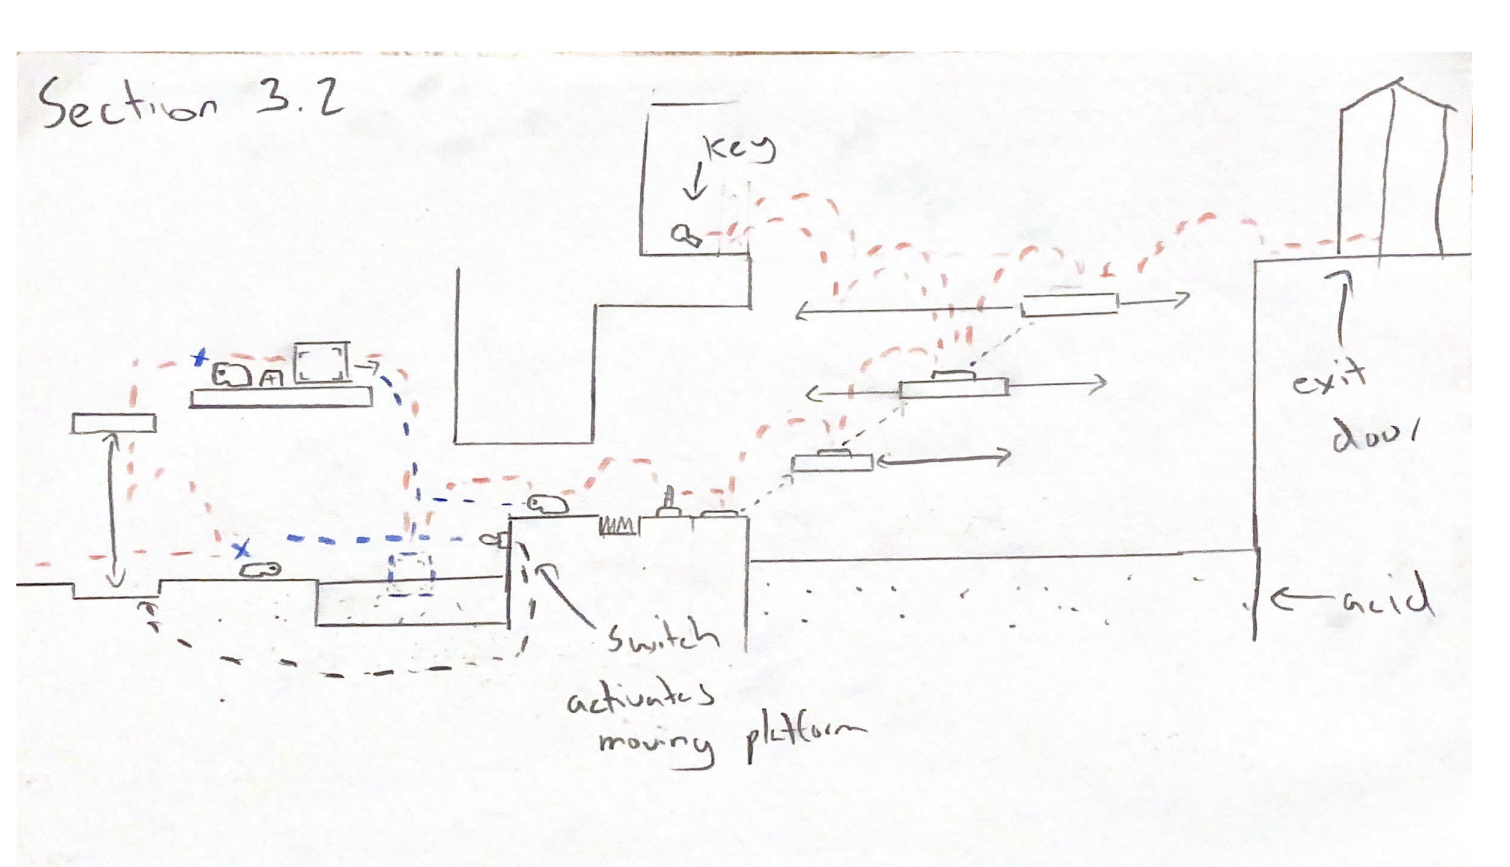 Section 3.2
key
exit
door
acid
switch
activates
moving platform